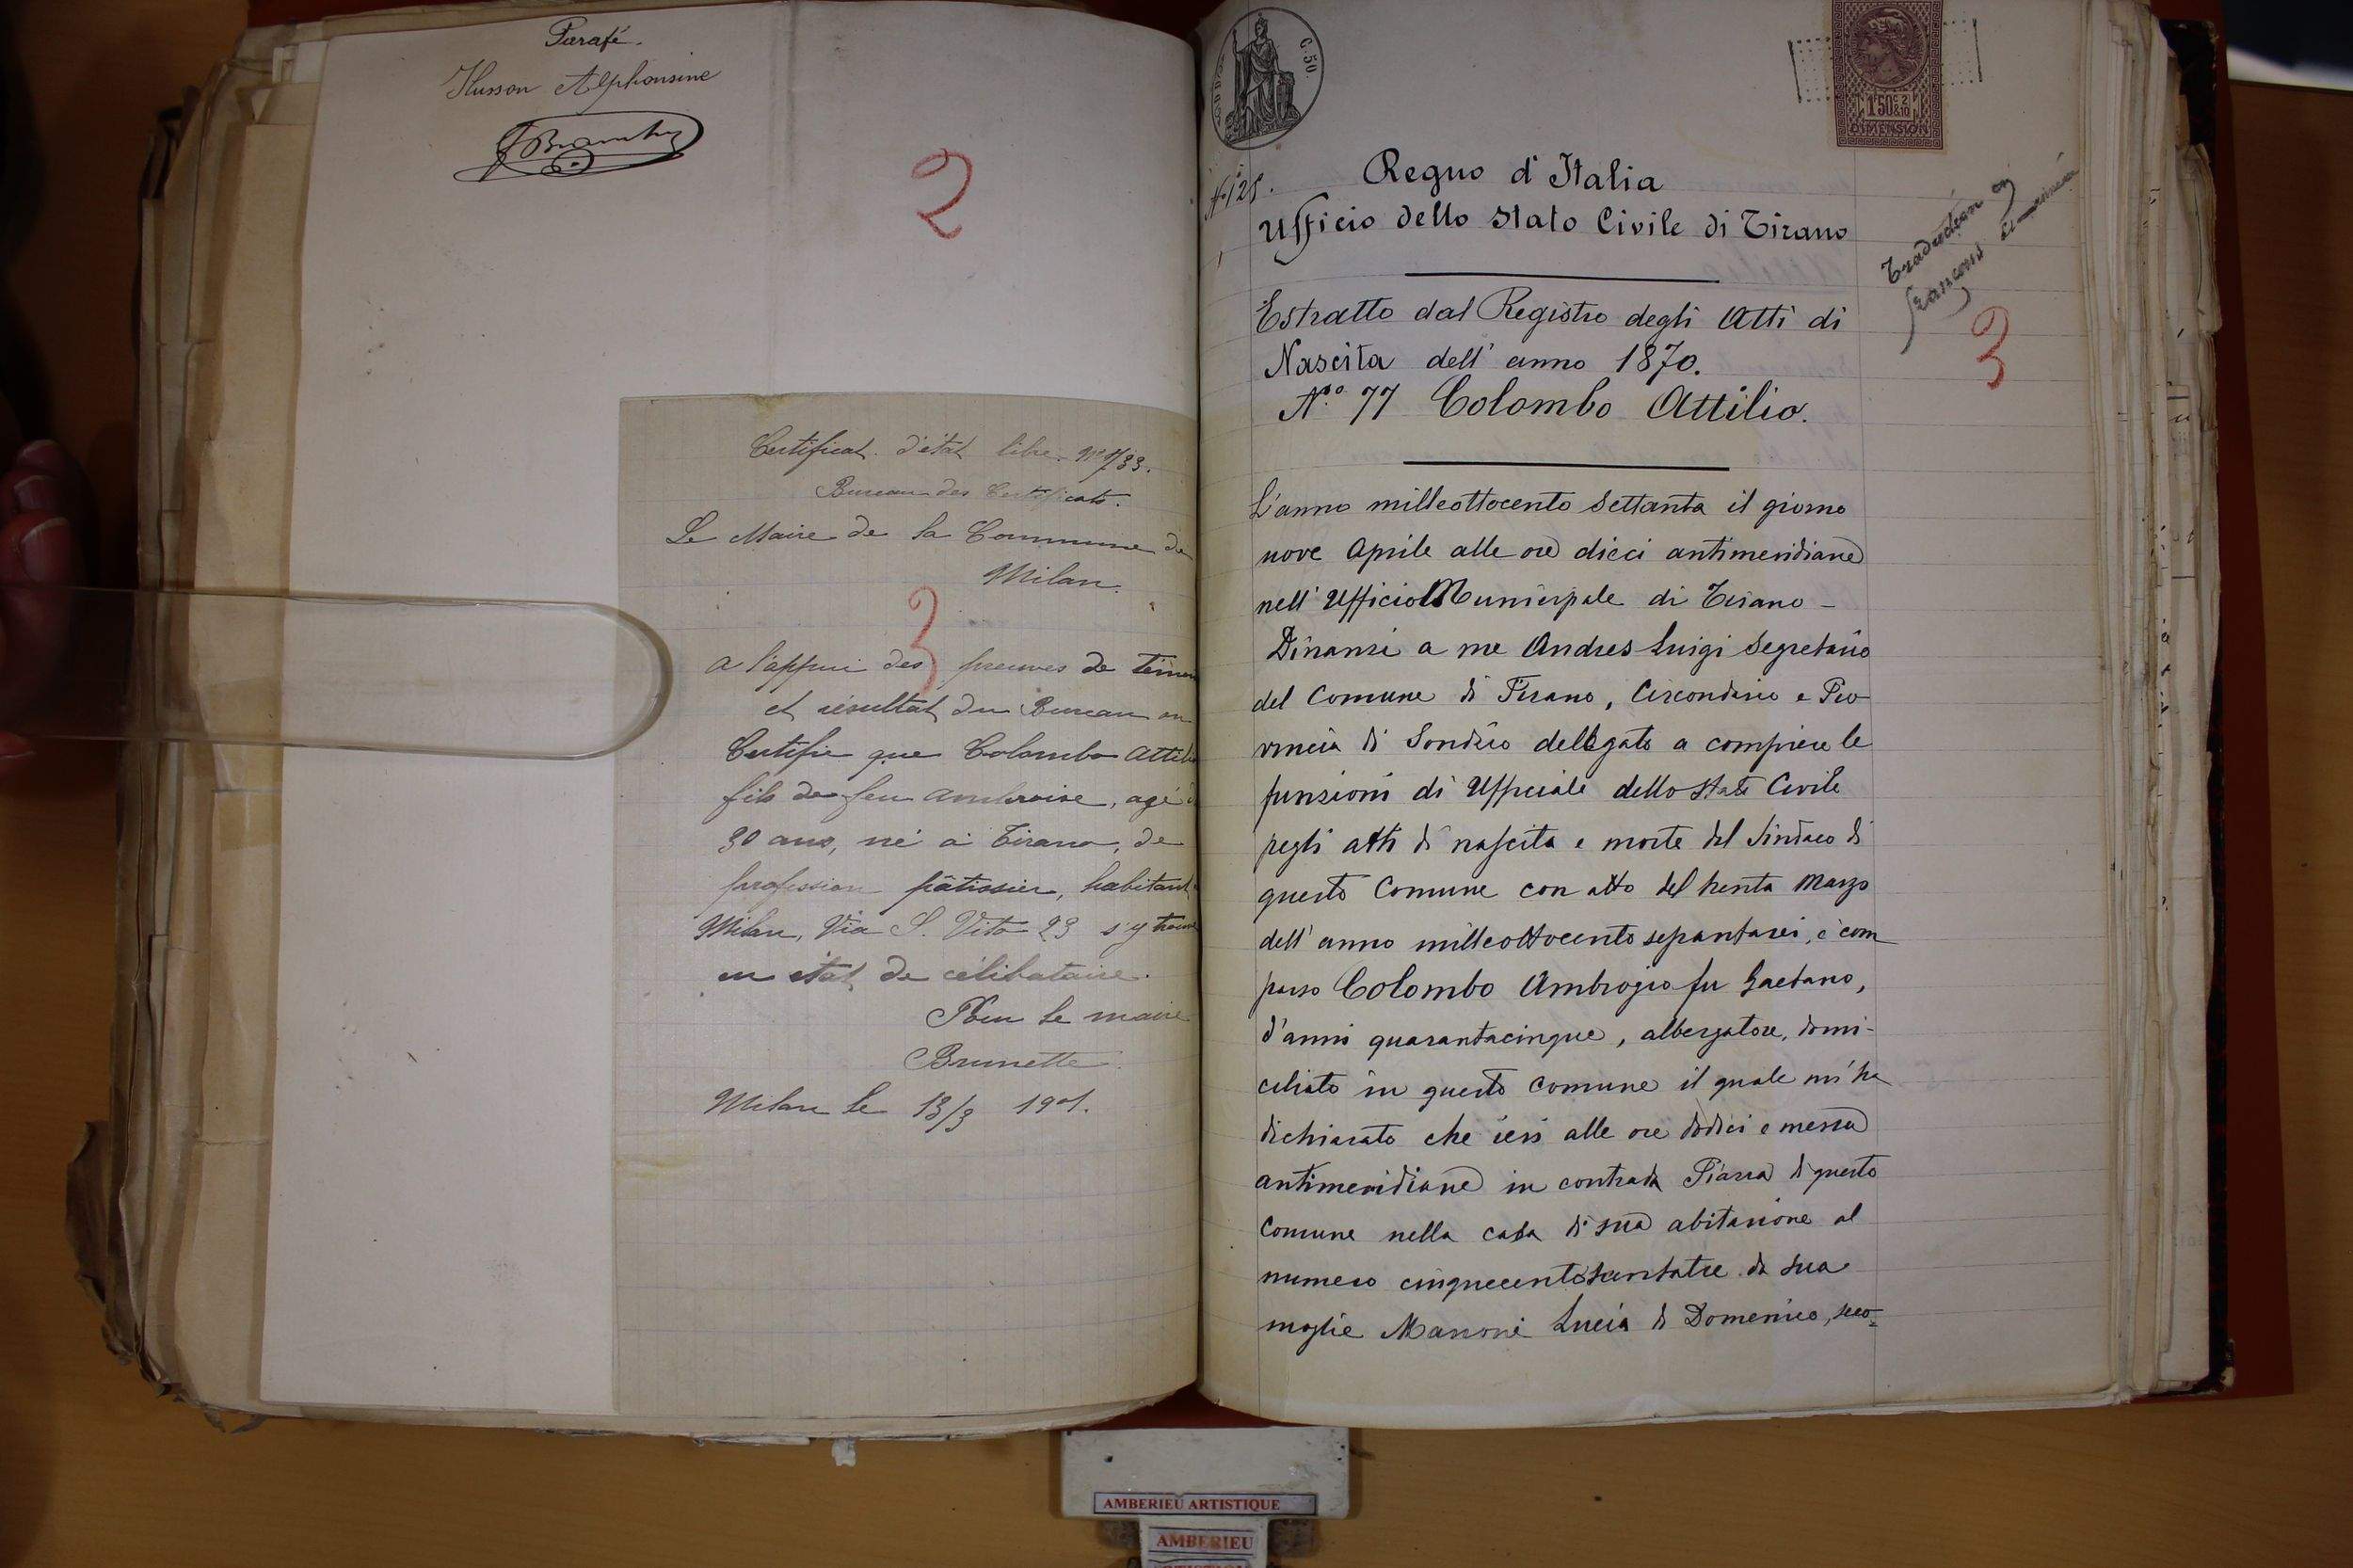 Parafé.
Husson Alphonsine
2
Certificat d'état libre. Nº 1/33.
Bureau des Certificats.
Le Maire de la Commune de
Milan.
3
A l'appui des preuves de
et résultat du Bureau on
Certifie que Colombo Attilio
fils de feu Ambroise, agé
30 ans, né à Tirano, de
profession pâtissier, habitant
Milan, Via S. Vito 23 s'y trouve
en état de célibataire.
Pour le maire
Brunette
Milan le 13/3 1901.
C. 50
1F50c 2/10
DIMENSION
Nº 125.
Regno d'Italia
Ufficio dello Stato Civile di Tirano
Traduction en
français
3
Estratto dal Registro degli Atti di
Nascita dell' anno 1870.
Nº 77 Colombo Attilio.
L'anno milleottocento settanta il giorno
nove Aprile alle ore dieci antimeridiane
nell' Ufficio Municipale di Tirano -
Dinanzi a me Andres Luigi Segretario
del Comune di Tirano, Circondario e Pro
vincia di Sondrio dellegato a compiere le
funzioni di Ufficiale dello Stato Civile
pegli atti di nascita e morte dal Sindaco di
questo Comune con atto del trenta Marzo
dell' anno milleottocento sessantasei, è com
parso Colombo Ambrogio fu Gaetano,
d'anni quarantacinque, albergatore, domi-
ciliato in questo Comune il quale mi ha
dichiarato che ieri alle ore dodici e mezza
antimeridiane in contrada Piazza di questo
Comune nella casa di sua abitazione al
numero da sua
moglie Manoni Lucia di Domenico, seco-
AMBERIEU ARTISTIQUE
AMBERIEU